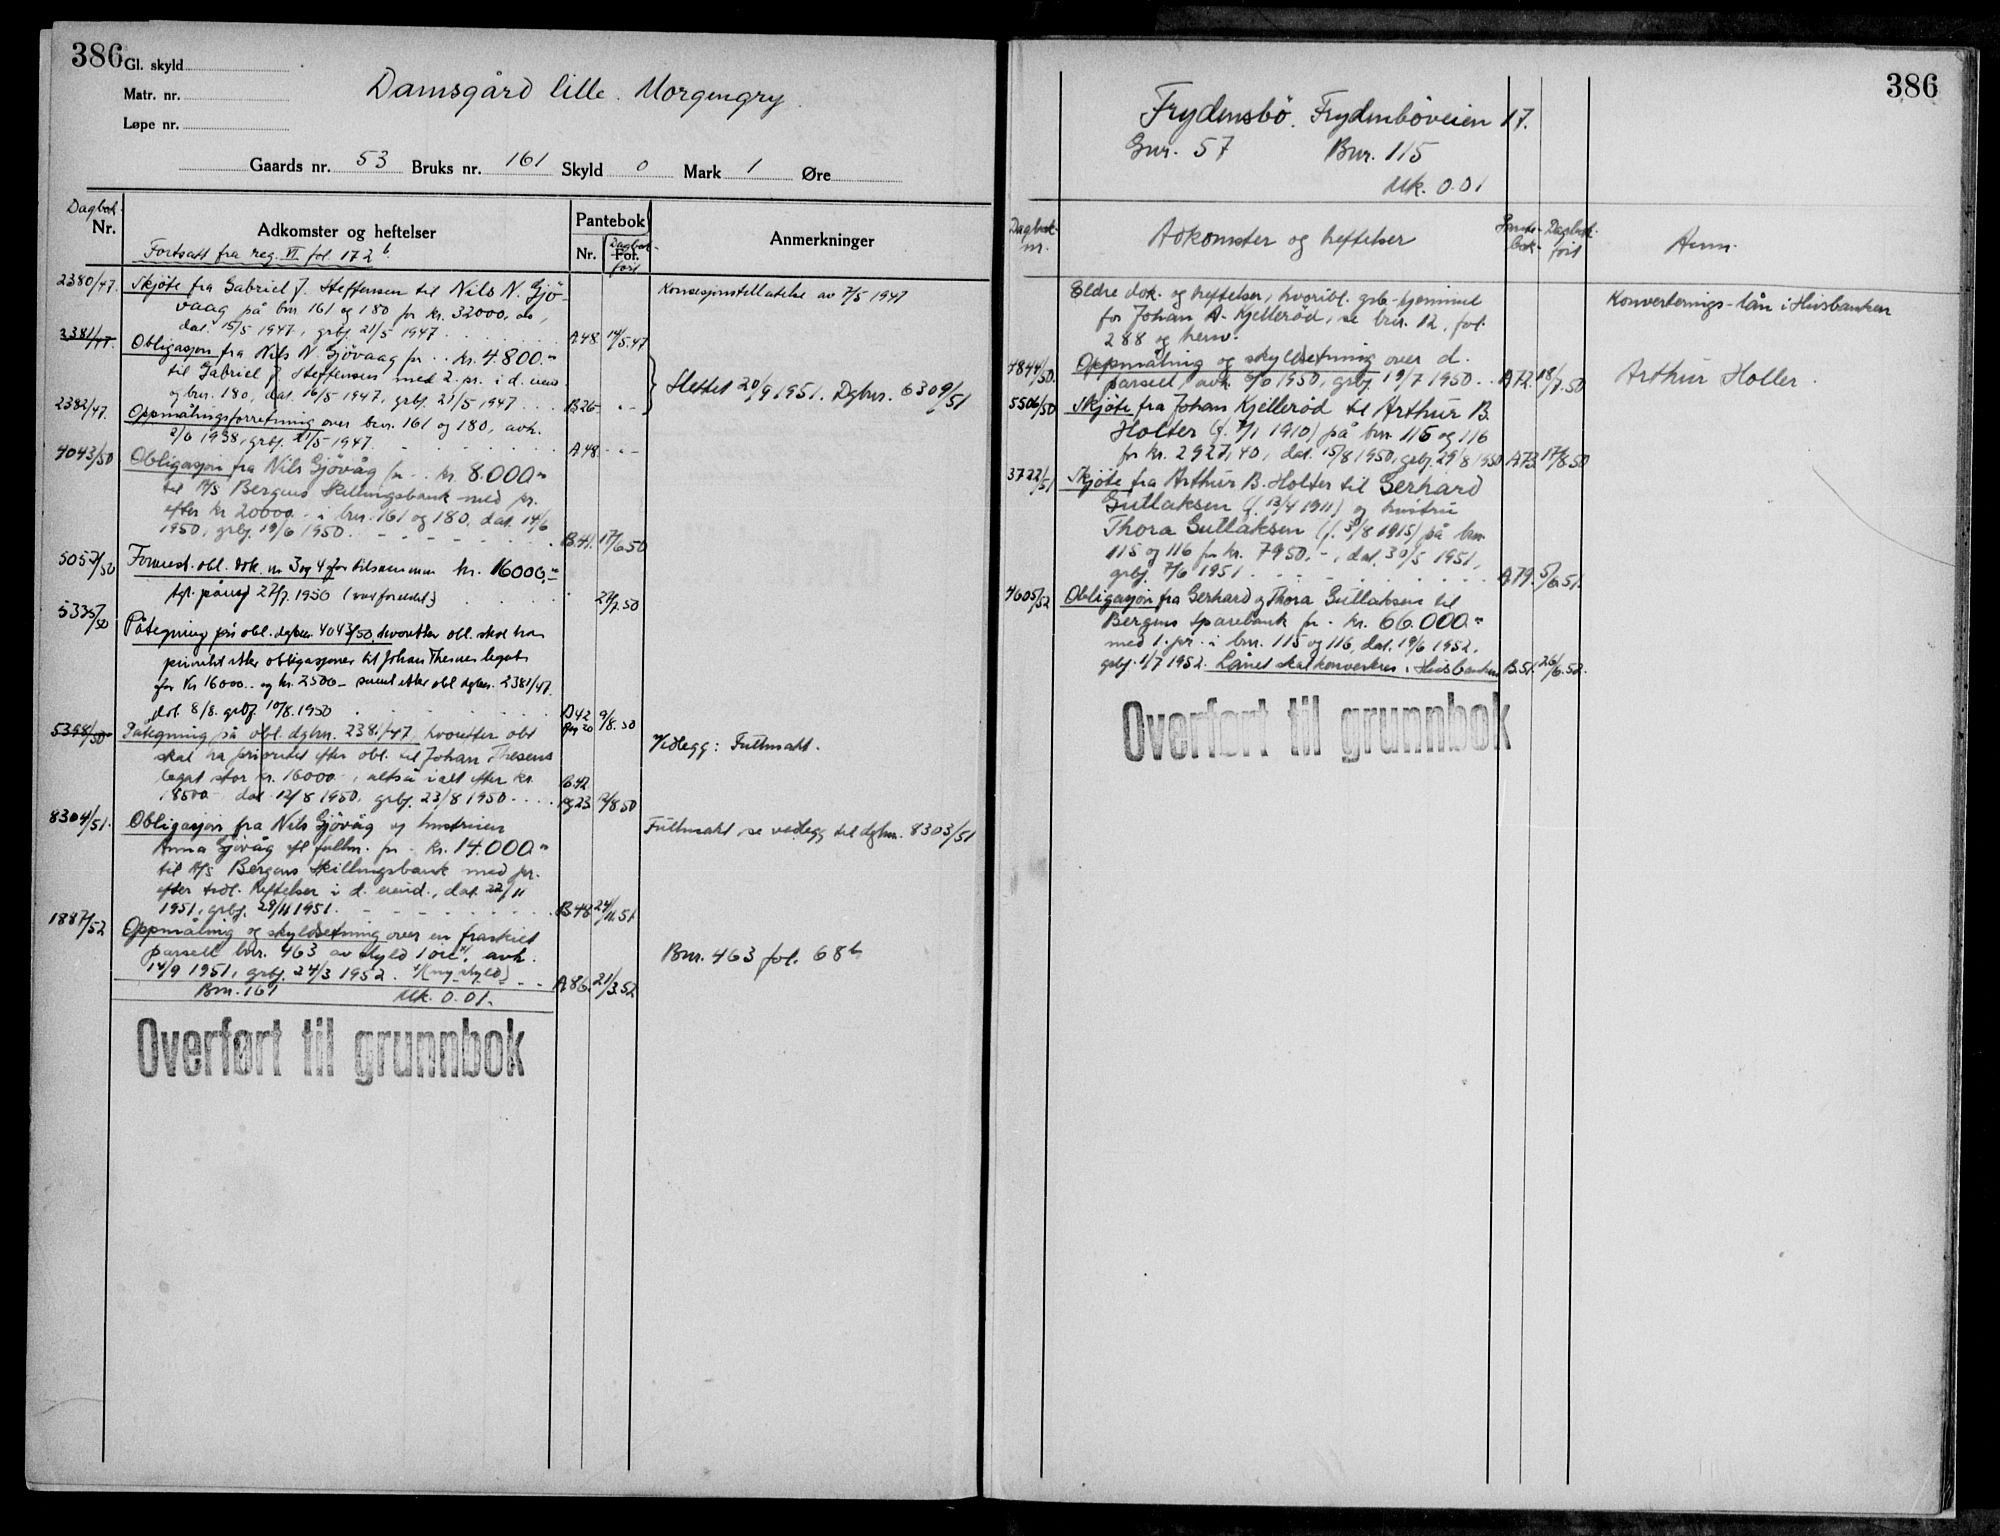 386
Gl. skyld
Matr. nr.
Løpe nr.
Damsgård lille. Morgengry.
Gaards nr. 53 Bruks nr. 161 Skyld 0 Mark 1 Øre
Dagbok
Nr.
Adkomster og heftelser
Pantebok
Anmerkninger
Fortsatt fra reg. VI fol. 172 b
Nr.
Fol.
Dagbok-
ført
2380/47. Skjøte fra Gabriel J. Steffensen til Nils N. Gjö- Konsesjonstillatelse av 7/5 1947
vaag på bnr 161 og 180 for kr. 32000.00,
dat. 15/5 1947, grbj 21/5 1947 A48 14/5.47
2381/47. Obligasjon fra Nils N. Gjövaag for kr. 4.800.-
til Gabriel J. Steffensen med 2. pr. i d. eiend.
og bnr. 180, dat. 16/5 1947, grbj. 21/5 1947 B26 - " - Slettet 20/9 1951. Dgbnr. 6309/51
2382/47. Oppmålingsforretning over bnr. 161 og 180, avh.
2/6 1938, grbj. 21/5 1947. A48 - " -
4043/50 Obligasjon fra Nils Gjövåg for kr. 8.000.-
til A/S Bergens Skillingsbank med pr.
efter kr 20000.- i bnr. 161 og 180, dat. 14/6
1950, grbj 19/6 1950. B.41. 17/6.50
5053/50 Fornyet obl. dok. nr 3 og 4 for tilsammen kr. 16000.-
tgl. påny 27/7. 1950 (var foreldet) 27/7.50
5335/50 Påtegning på obl. dgbnr. 4043/50, hvoretter obl. skal ha
prioritet etter obligasjoner til Johan Thesens legat
for kr 16000.- og kr. 2500 - samt etter obl dgbnr. 2381/47.
dat. 8/8. grbj 10/8. 1950 B42 9/8.50
5398/50 Påtegning på obl. dgbnr. 2381/47 hvoretter obl Vedlegg: Fullmakt.
skal ha prioritet efter obl. til Johan Thesens
legat stor kr. 16000.-, altså ialt efter kr.
18500.- dat 12/8 1950, grbj. 23/8 1950 B42 pg 23 12/8 50
8304/51. Obligasjon fra Nils Gjövåg og hustruen Fullmakt se vedlegg til dgbnr. 8303/51
Anna Gjövåg efl fullm. for kr. 14.000.-
til A/S Bergens Skillingsbank med pr.
efter tidl. heftelser i d. eiend., dat. 22/11
1951, grbj. 29/11 1951. B48 24/11.51
1887/52 Oppmåling og skyldsetning over en fraskilt
parsell bnr. 463 av skyld 1 øre, avh. Bnr. 463 fol. 68 b
14/9 1951, grbj. 24/3 1952. (ny skyld) A86. 21/3.52
Bnr. 161 Mk. 0.01.
Overført til grunnbok
386
Frydensbö. Frydenböveien 17.
Gnr. 57 Bnr. 115
Mk. 0.01
Dagbok
nr.
Adkomster og heftelser
Pante-
bok
Dagbok-
ført
Anm.
Eldre dok. og heftelser, hvoribl. grb-hjemmel Konverterings-lån i Husbanken
for Johan A. Kjelleröd, se bnr. 12, fol.
288 og henv.
4844/50. Oppmåling og skyldsetning over d.
parsell, avh. 6/6 1950, grbj 19/7 1950 A72. 18/7.50 Arthur Holter.
5506/50 Skjöte fra Johan Kjelleröd til Arthur B.
Holter (f. 7/1 1910) på bnr 115 og 116
for kr. 2927,40, dat. 15/8 1950, grbj. 29/8 1950 A73. 17/8.50
3722/51 Skjöte fra Arthur B. Holter til Gerhard
Gullaksen (f. 13/4 1911) og hustru
Thora Gullaksen (f. 31/8 1915) på bnr
115 og 116 for kr. 7950.-, dat. 30/5 1951,
grbj. 7/6 1951. A79. 5/6.51.
4605/52 Obligasjon fra Gerhard og Thora Gullaksen til
Bergens Sparebank for kr. 66.000.-
med 1. pr. i bnr. 115 og 116, dat. 19/6 1952,
grbj. 1/7 1952. Lånet skal konverteres i Husbanken B.51. 26/6.52.
Overført til grunnbok